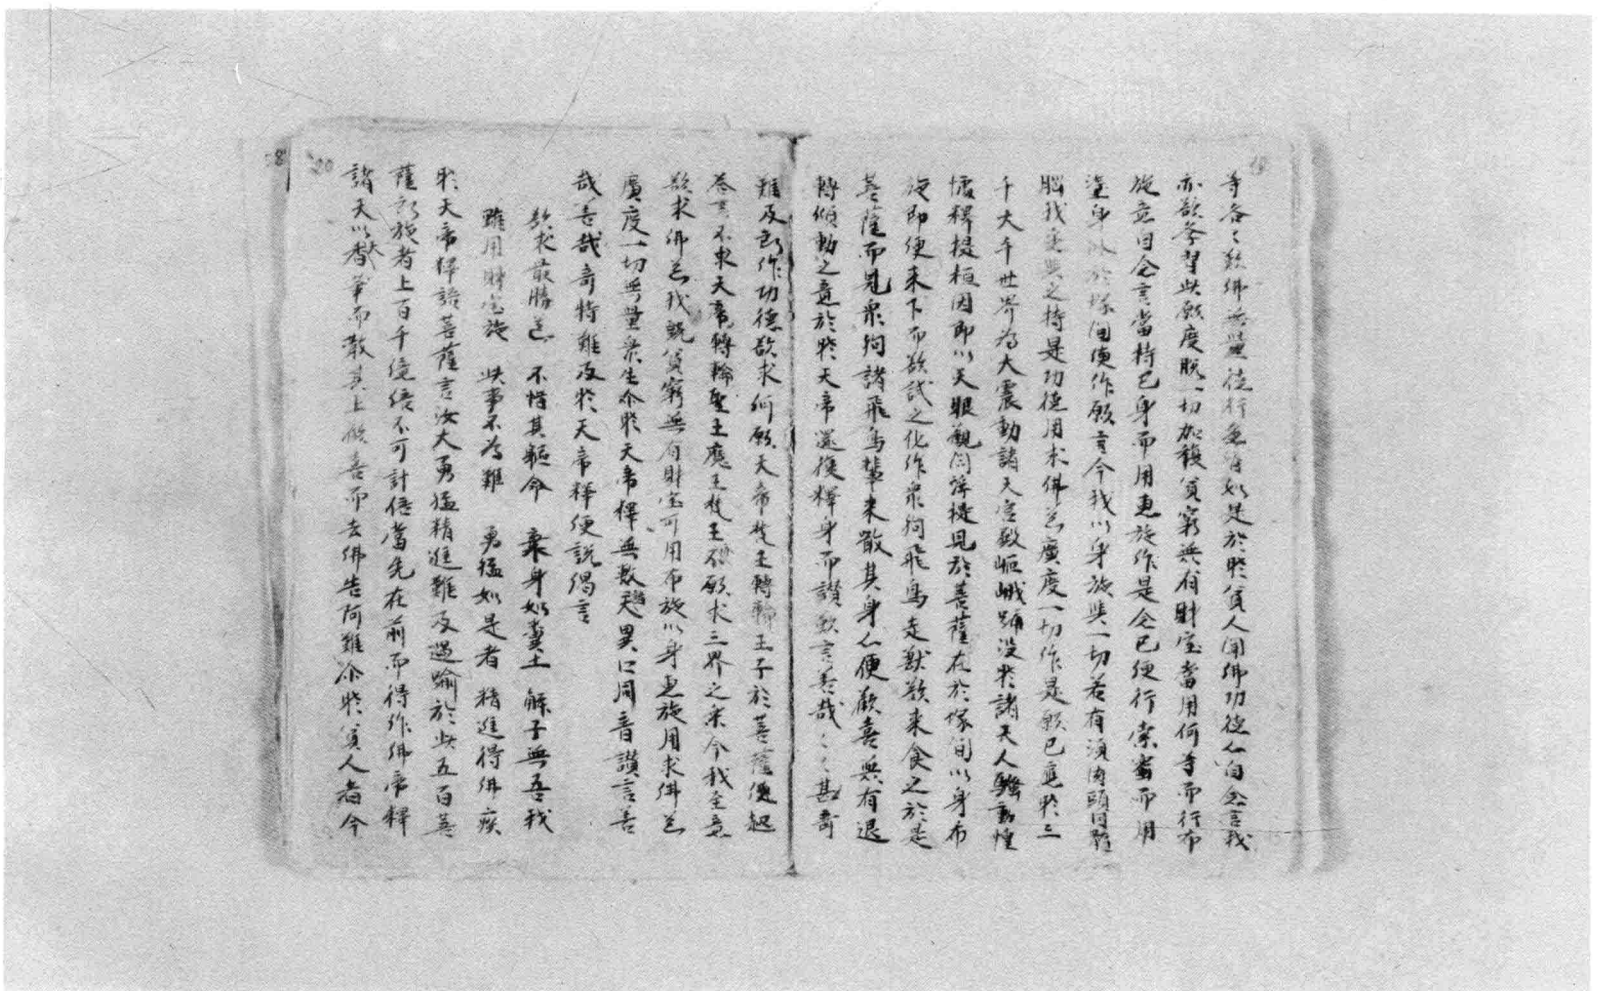 等各各歎佛無量德行无有如是於時貧人聞佛功德心自念言我
亦欲學習此願度脫一切加復貧窮無有財宝當用何等而行布
施意自念言當持己身而用惠施作是念已便行索蜜而用
塗身臥於塚間便作願言今我以身施與一切若有須肉頭目髓
腦我悉與之持是功德用求佛道廣度一切作是願已應時三
千大千世界為大震動諸天宮殿岠峨踊没時諸天人騷動惶
懅釋提桓因即以天眼觀閻浮提見於菩薩在於塚間以身布
施即便来下而欲試之化作衆狗飛鳥走獸欲来食之於是
菩薩而見衆狗諸飛鳥輩来噉其身心便歡喜無有退
轉傾動之意於時天帝還復釋身而讃歎言善哉々々甚奇
難及所作功德欲求何願天帝梵王轉輪王乎於菩薩便起
答言不求天帝轉輪聖王魔王梵王亦不願求三界之樂今我至意
欲求佛道我既貧窮無有財宝可用布施以身惠施用求佛道
廣度一切無量衆生尒時天帝釋無數諸天異口同音讃言善
哉善哉奇特難及時天帝釋便說偈言
欲求最勝道 不惜其軀命 棄身如糞土 解了無吾我
雖用財宝施 此事不為難 勇猛如是者 精進得佛疾
時天帝釋語菩薩言汝大勇猛精進難及過踰於此五百菩
薩所施者上百千億倍不可計倍當先在前而得作佛帝釋
諸天以天香華而散其上歡喜而去佛告阿難尒時貧人者今
20
8